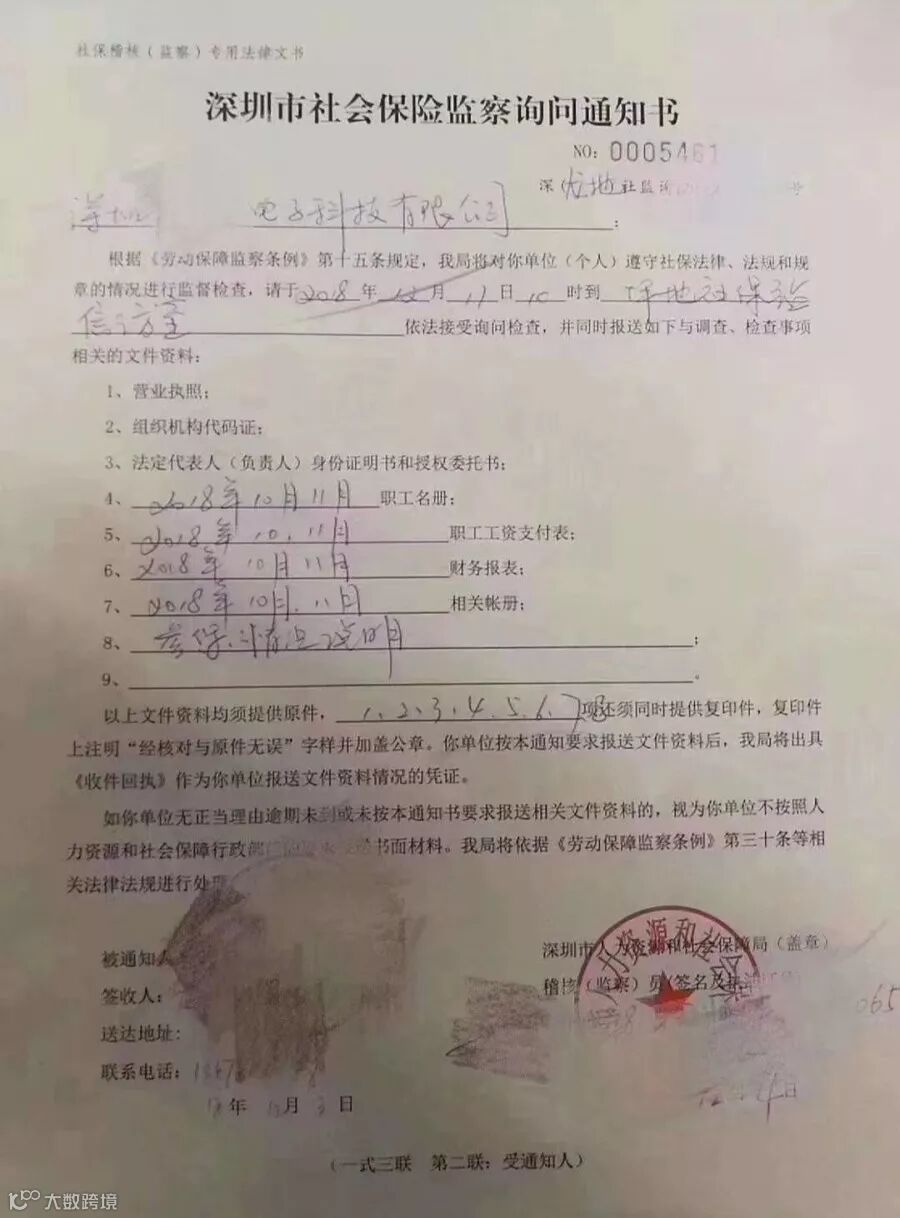 社保稽核（监察）专用法律文书
深圳市社会保险监察询问通知书
NO: 0005461
深 龙地 社监询 号
深圳 电子科技有限公司：
根据《劳动保障监察条例》第十五条规定，我局将对你单位（个人）遵守社保法律、法规和规
章的情况进行监督检查，请于2018年12月11日10时到坪地社保站
信访室依法接受询问检查，并同时报送如下与调查、检查事项
相关的文件资料：
1、营业执照；
2、组织机构代码证；
3、法定代表人（负责人）身份证明书和授权委托书；
4、2018年10月11月职工名册；
5、2018年10、11月职工工资支付表；
6、2018年10月11月财务报表；
7、2018年10月、11月相关帐册；
8、参保情况说明；
9、。
以上文件资料均须提供原件，1、2、3、4、5、6、7项还须同时提供复印件，复印件
上注明“经核对与原件无误”字样并加盖公章。你单位按本通知要求报送文件资料后，我局将出具
《收件回执》作为你单位报送文件资料情况的凭证。
如你单位无正当理由逾期未到或未按本通知书要求报送相关文件资料的，视为你单位不按照人
力资源和社会保障行政部门 书面材料。我局将依据《劳动保障监察条例》第三十条等相
关法律法规进行处理
被通知人
深圳市人力资源和社会保障局（盖章）
签收人：
稽核（监察）员（签名及
065
送达地址：
联系电话：
年 月 日
（一式三联 第二联：受通知人）
大数跨境